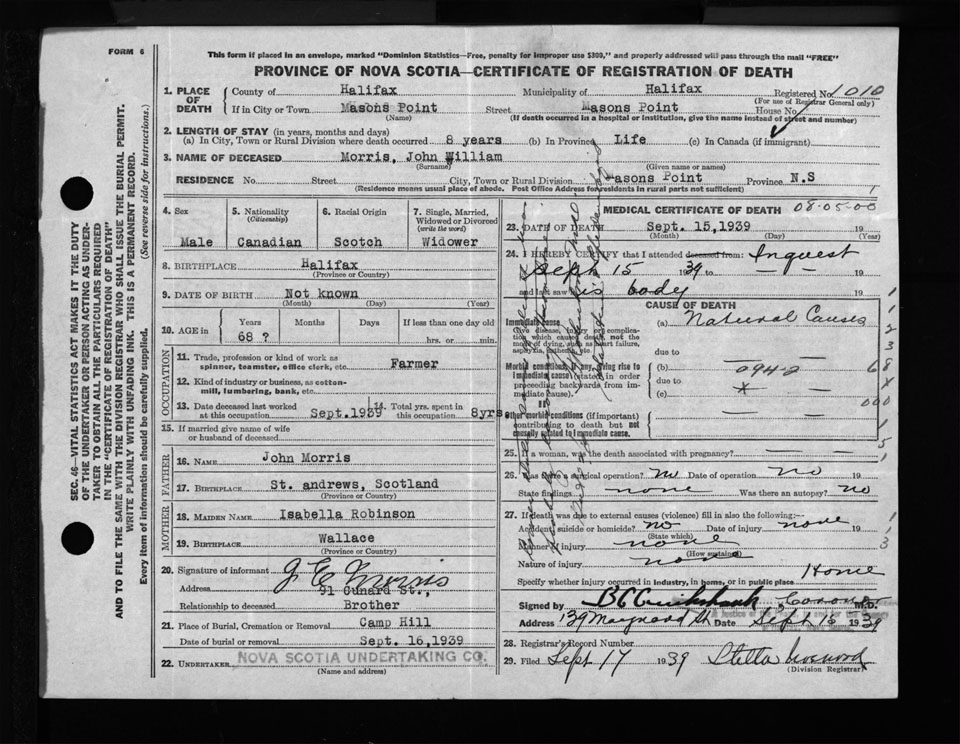 FORM 6
This form if placed in an envelope, marked "Dominion Statistics—Free, penalty for improper use $300," and properly addressed will pass through the mail "FREE"
PROVINCE OF NOVA SCOTIA—CERTIFICATE OF REGISTRATION OF DEATH
SEC. 46—VITAL STATISTICS ACT MAKES IT THE DUTY
OF THE UNDERTAKER OR PERSON ACTING AS UNDER-
TAKER TO OBTAIN ALL THE PARTICULARS REQUIRED
IN THE "CERTIFICATE OF REGISTRATION OF DEATH"
AND TO FILE THE SAME WITH THE DIVISION REGISTRAR WHO SHALL ISSUE THE BURIAL PERMIT.
WRITE PLAINLY WITH UNFADING INK. THIS IS A PERMANENT RECORD.
Every item of information should be carefully supplied. (See reverse side for instructions.)
1. PLACE OF DEATH County of Halifax Municipality of Halifax Registered No. 1010
(For use of Registrar General only)
If in City or Town Masons Point Street Masons Point House No.
(Name) (If death occurred in a hospital or institution, give the name instead of street and number)
2. LENGTH OF STAY (in years, months and days)
(a) In City, Town or Rural Division where death occurred 8 years (b) In Province Life (c) In Canada (if immigrant)
3. NAME OF DECEASED Morris, John William
(Surname) (Given name or names)
RESIDENCE No. Street City, Town or Rural Division Masons Point Province N.S
(Residence means usual place of abode. Post Office Address for residents in rural parts not sufficient)
4. Sex 5. Nationality (Citizenship) 6. Racial Origin 7. Single, Married, Widowed or Divorced (write the word)
Male Canadian Scotch Widower
8. BIRTHPLACE Halifax
(Province or Country)
9. DATE OF BIRTH Not known
(Month) (Day) (Year)
10. AGE in Years Months Days If less than one day
68 ? hrs. or min.
OCCUPATION
11. Trade, profession or kind of work as spinner, teamster, office clerk, etc. Farmer
12. Kind of industry or business, as cotton-mill, lumbering, bank, etc.
13. Date deceased last worked at this occupation Sept.1939 14. Total yrs. spent in this occupation 8yrs.
15. If married give name of wife or husband of deceased
FATHER
16. NAME John Morris
17. BIRTHPLACE St. andrews, Scotland
(Province or Country)
MOTHER
18. MAIDEN NAME Isabella Robinson
19. BIRTHPLACE Wallace
(Province or Country)
20. Signature of informant J E Morris
Address 91 Cunard St.,
Relationship to deceased Brother
21. Place of Burial, Cremation or Removal Camp Hill
Date of burial or removal Sept. 16,1939
22. UNDERTAKER NOVA SCOTIA UNDERTAKING CO.
(Name and address)
MEDICAL CERTIFICATE OF DEATH 08-05-00
23. DATE OF DEATH Sept. 15,1939 19
(Month) (Day) (Year)
24. I HEREBY CERTIFY that I attended deceased from: Inquest
Sept 15 1939 to — — —
and last saw his body 19
CAUSE OF DEATH
Immediate cause
(a) Natural Causes
Give disease, injury or complication which caused death, not the mode of dying, such as heart failure, asphyxia, asthenia, etc.
due to
Morbid conditions, if any, giving rise to immediate cause (stated in order proceeding backwards from immediate cause).
(b) 094-2
due to
(c) *
Other morbid conditions (if important) contributing to death but not causally related to immediate cause.
25. If a woman, was the death associated with pregnancy?
26. Was there a surgical operation? no Date of operation no 19
State findings none Was there an autopsy? no
27. If death was due to external causes (violence) fill in also the following:—
Accident, suicide or homicide? no Date of injury none 19
(State which)
Manner of injury none
(How sustained)
Nature of injury none
Specify whether injury occurred in industry, in home, or in public place Home
Signed by B C Cruikshank, Coroner M.D.
Address 139 Maynard St Date Sept 15 1939
28. Registrar's Record Number
29. Filed Sept 17 1939 Stella
(Division Registrar)